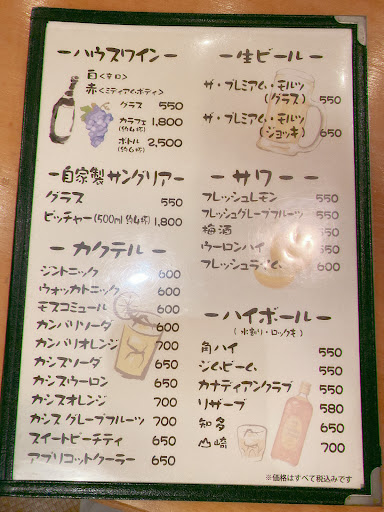 ーハウスワインー
白〈辛口〉
赤〈ミディアムボディ〉
グラス 550
カラフェ 1,800
(約4杯)
ボトル 2,500
(約6杯)
ー自家製サングリアー
グラス 550
ピッチャー(500ml 約4杯) 1,800
ーカクテルー
ジントニック 600
ウォッカトニック 600
モスコミュール 600
カンパリソーダ 650
カンパリオレンジ 700
カシスソーダ 650
カシスウーロン 650
カシスオレンジ 700
カシスグレープフルーツ 700
スイートピーチティ 650
アプリコットクーラー 650
ー生ビールー
ザ・プレミアム・モルツ
(グラス) 550
ザ・プレミアム・モルツ
(ジョッキ) 650
ーサワーー
フレッシュレモン 550
フレッシュグレープフルーツ 550
梅酒 550
ウーロンハイ 550
フレッシュライム 550
ーハイボールー
(水割り・ロックも)
角ハイ 550
ジムビーム 550
カナディアンクラブ 550
リザーブ 580
知多 650
山崎 700
※価格はすべて税込みです